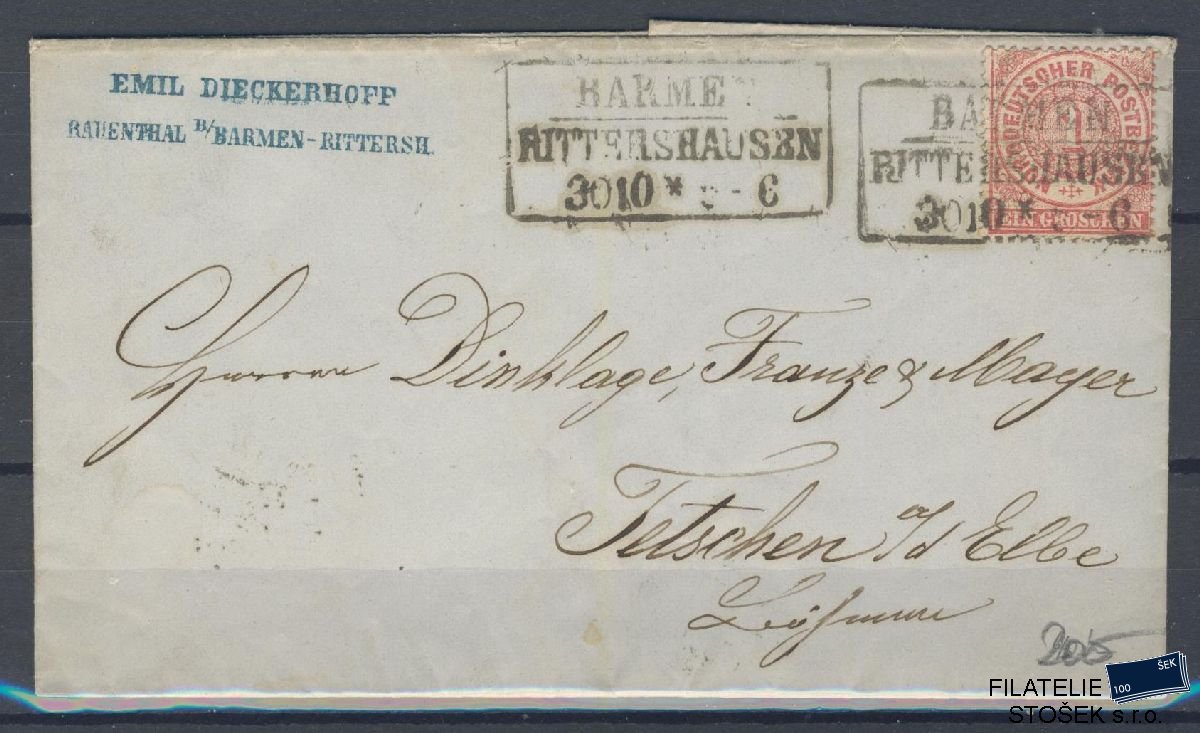 EMIL DIECKERHOFF
RAUENTHAL B/BARMEN-RITTERSH.
BARMEN
RITTERSHAUSEN
3010 * 5-6
BARMEN
RITTERSHAUSEN
3010 * 5-6
NORDDEUTSCHER POSTBEZIRK
1
EIN GROSCHEN
Herren Dinklage, Franze & Mayer
Tetschen a/d Elbe
Böhmen
FILATELIE
STOŠEK s.r.o.
ŠEK
100